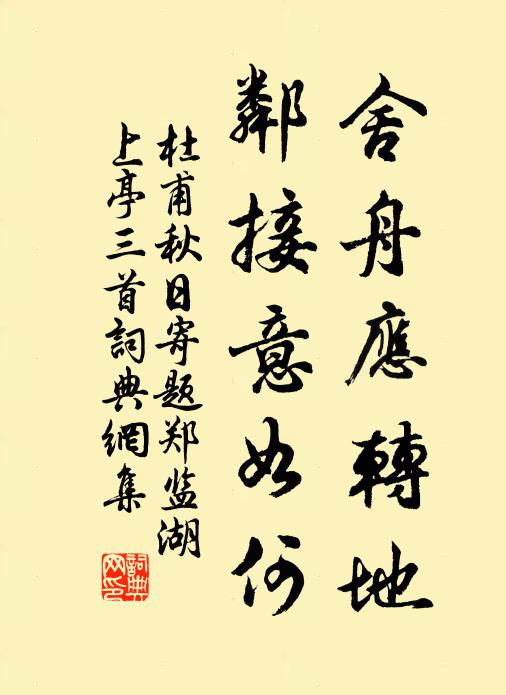 舍舟應轉地
鄰接意如何
杜甫秋日寄题郑监湖
上亭三首詞典網集
詞典
网印